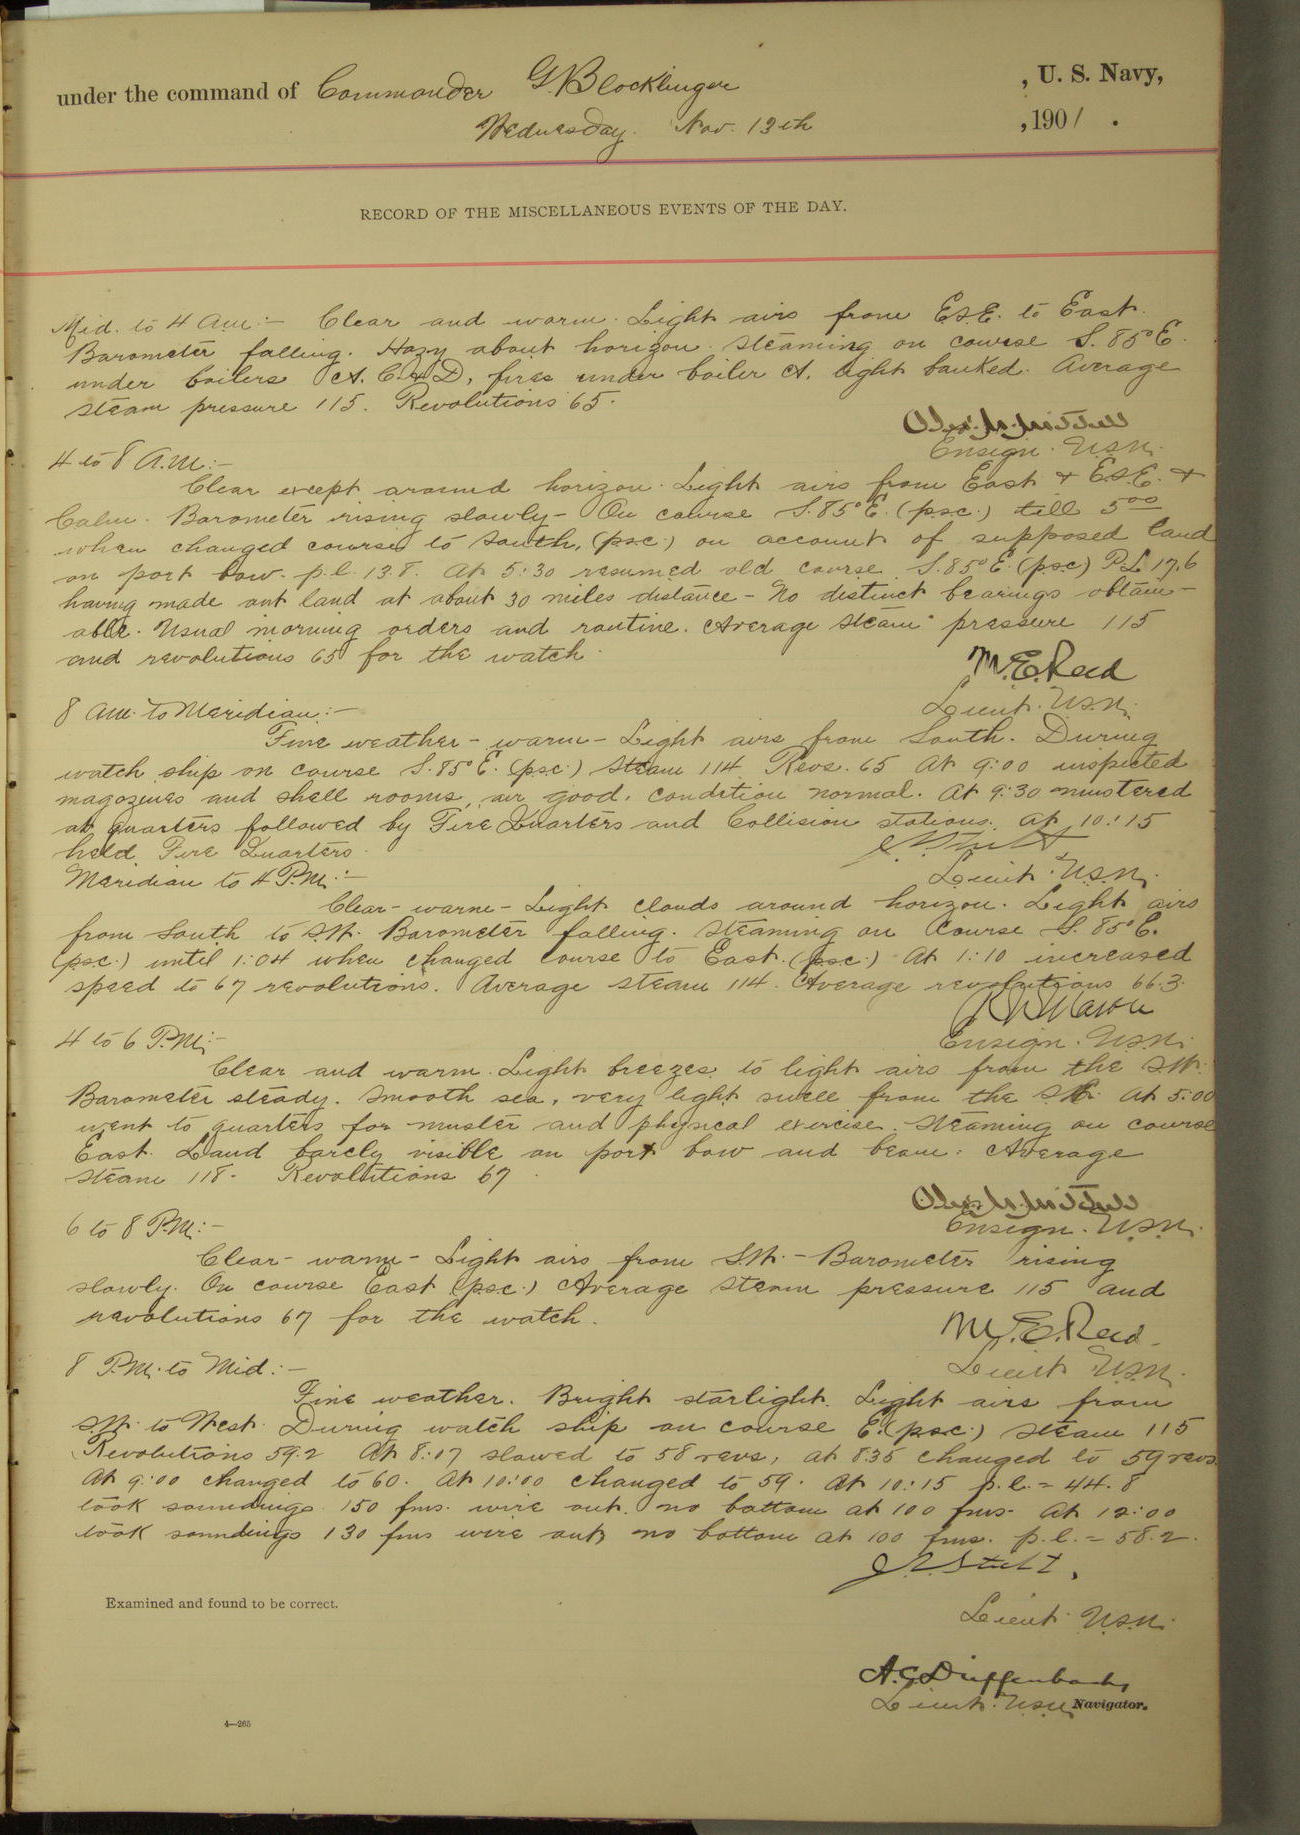 under the command of Commander G. Blocklinger , U. S. Navy,
Wednesday. Nov. 13th , 1901 .
RECORD OF THE MISCELLANEOUS EVENTS OF THE DAY.
Mid. to 4 a.m:— Clear and warm. Light airs from E.S.E. to East.
Barometer falling. Hazy about horizon. Steaming on course S. 85° E.
under boilers A. C. & D, fires under boiler A. light banked. Average
steam pressure 115. Revolutions 65.
Ensign. U.S.N.
4 to 8 A.M:—
Clear except around horizon. Light airs from East & E.S.E. &
Calm. Barometer rising slowly — On course S. 85° E. (p.s.c.) till 5 00
when changed course to South, (psc.) on account of supposed land
on port bow. p.l. 13.8. At 5:30 resumed old course S. 85° E. (p.s.c) P.L 17.6
having made out land at about 30 miles distance — No distinct bearings obtain-
able. Usual morning orders and routine. Average steam pressure 115
and revolutions 65 for the watch.
M. E. Reed
Lieut. U.S.N.
8 a.m. to Meridian:—
Fine weather — warm — Light airs from South. During
watch ship on course S. 85° E. (p.s.c.) Steam 114 Revs. 65 At 9:00 inspected
magazines and shell rooms, air good, condition normal. At 9:30 mustered
at quarters followed by Fire Quarters and Collision stations. At 10:15
held Fire Quarters.
Lieut. U.S.N.
Meridian to 4 P.M.:—
Clear — warm — Light clouds around horizon. Light airs
from South to S.W. Barometer falling. Steaming on course S. 85° E.
(p.s.c.) until 1:04 when changed course to East. (p.s.c.) At 1:10 increased
speed to 67 revolutions. Average steam 114. Average revolutions 66.3.
Ensign. U.S.N.
4 to 6 P.M:—
Clear and warm. Light breezes to light airs from the S.W.
Barometer steady. Smooth sea, very light swell from the At 5:00
went to quarters for muster and physical exercise. Steaming on course
East. Land barely visible on port bow and beam. Average
steam 118. Revolutions 67.
Ensign. U.S.N.
6 to 8 P.M:—
Clear — warm — Light airs from S.W. — Barometer rising
slowly. On course East (p.s.c.) Average steam pressure 115 and
revolutions 67 for the watch.
M. E. Reed.
Lieut U.S.N.
8 P.M. to Mid:—
Fine weather. Bright starlight. Light airs from
S.W. to West. During watch ship on course E. (p.s.c.) Steam 115
Revolutions 59.2 At 8:07 slowed to 58 revs, at 8:35 changed to 59 revs.
At 9:00 changed to 60. At 10:00 changed to 59. At 10:15 p.l. = 44.8
took soundings 150 fms. wire out. no bottom at 100 fms. At 12:00
took soundings 130 fms wire out, no bottom at 100 fms. p.l. = 58.2.
Lieut. U.S.N.
Examined and found to be correct.
A. G. Dieffenbach,
Lieut. U.S.N. Navigator.
4—265